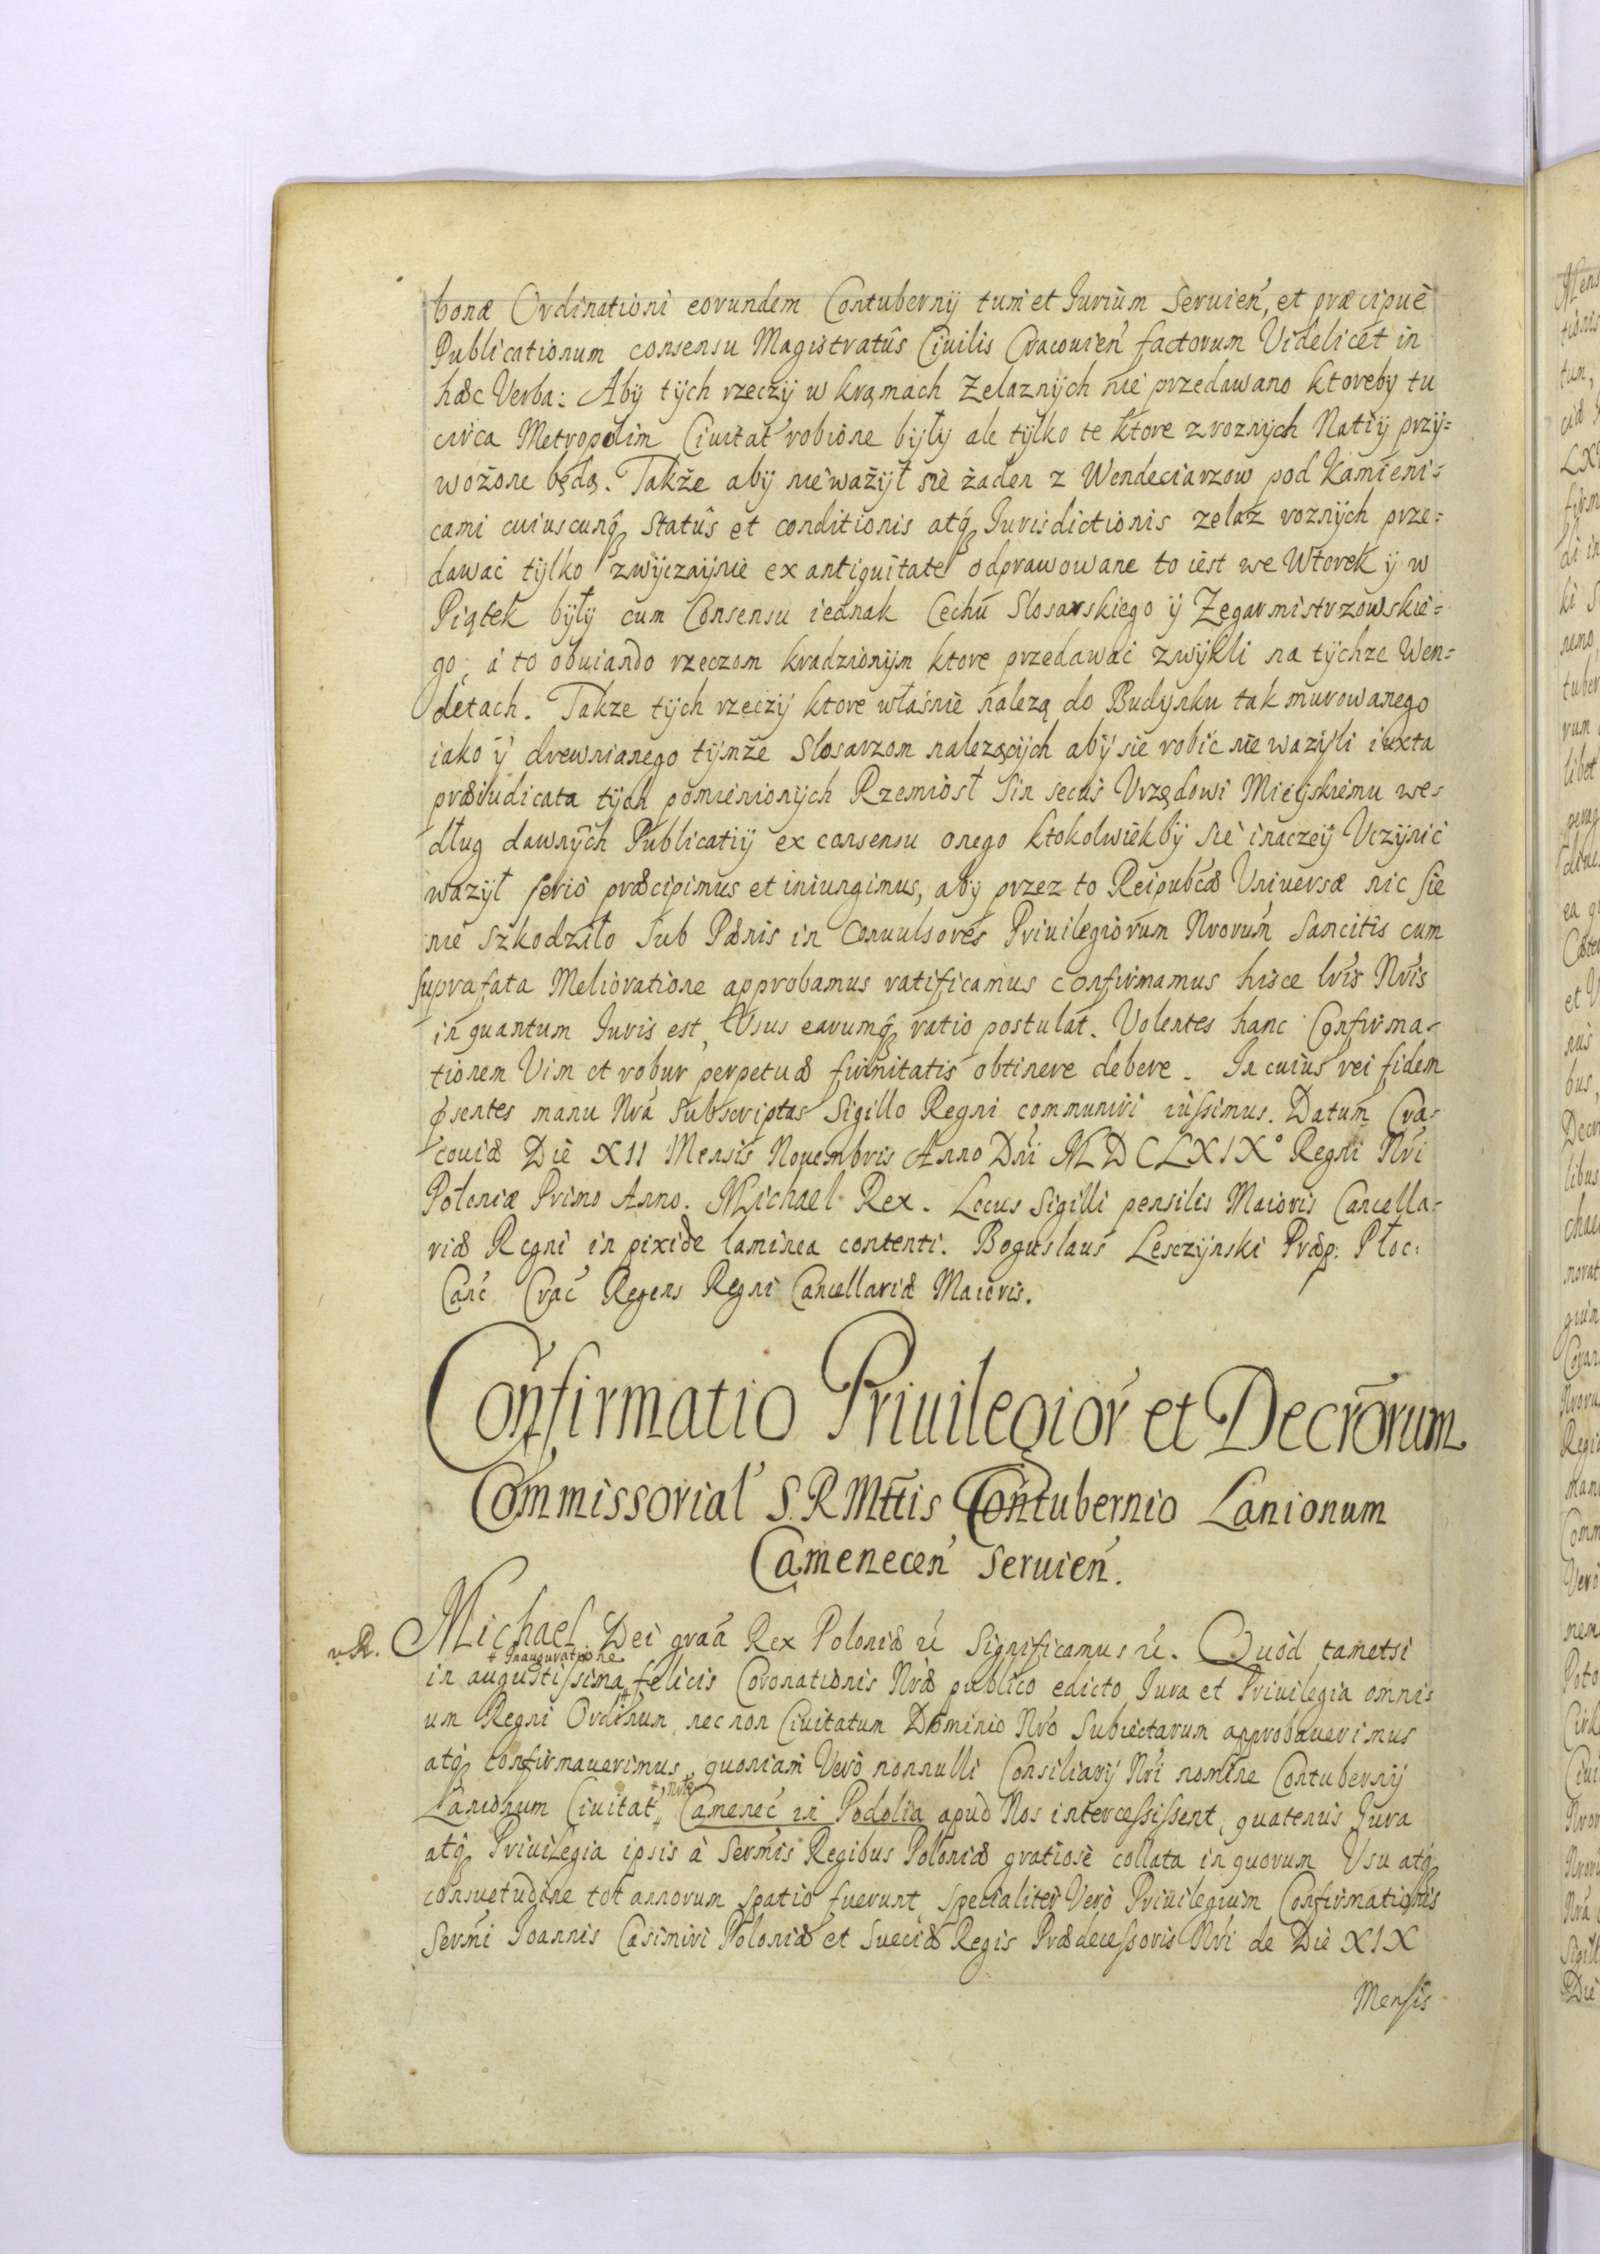 bonæ Ordinationi eorundem Contubernij tum et Iurium Seruień, et præcipuè
Publicationum consensu Magistratûs Ciuilis Cracouień factorum Videlicet in
hæc Verba: Aby tych rzeczy w kramach Zelaznych nie przedawano ktoreby tu
circa Metropolim Ciuitat robione były ale tylko te ktore z roznych Natiy przy=
wożone będą. Także aby nie ważył sie żaden z Wendeciarzow pod Kamieni=
cami cuiuscunq̨ Statûs et conditionis atq̨ Iurisdictionis zelaz roznych prze=
dawać tylko zwyczaynie ex antiquitate odprawowane to iest we Wtorek y w
Piątek były cum Consensu iednak Cechu Slosarskiego y Zegarmistrzowskie=
go; a to obuiando rzeczom kradzionym ktore przedawać zwykli na tychze Wen=
detach. Takze tych rzeczy ktore własnie nalezą do Budynku tak murowanego
iako y drewnianego tymże Slosarzom nalezących aby sie robić nie wazyli iuxta
præiudicata tych pomienionych Rzemiosł Sin secus Vrzędowi Mieyskiemu we=
dług dawnych Publicatiy ex consensu onego ktokolwiekby sie inaczey Vczynić
wazył serio præcipimus et iniungimus, aby przez to Reipubcæ Vniuersæ nic sie
nie szkodziło Sub Pænis in Conuulsores Priuilegiorum Nrorum Sancitis cum
suprafata Melioratione approbamus ratificamus confirmamus hisce lris Nris
in quantum Iuris est, Vsus earumq̨ ratio postulat. Volentes hanc Confirma=
tionem Vim et robur perpetuæ firmitatis obtinere debere. In cuius rei fidem
p̃sentes manu Nra Subscriptas Sigillo Regni communiri iussimus. Datum Cra=
couiæ Die XII Mensis Nouembris Anno Dni MDCLXIX° Regni Nri
Poloniæ Primo Anno. Michael Rex. Locus Sigilli pensilis Maioris Cancella=
riæ Regni in pixide laminea contenti. Boguslaus Lesczynski Præp: Płoc:
Canć Crać Regens Regni Cancellariæ Maioris.
Confirmatio Priuilegior̃ et Decrorum
Commissorial S. R. Mttis Contubernio Lanionum
Camenecen Seruien.
Michael Dei graa Rex Poloniæ &c Significamus &c. Quòd tametsi
+ Inauguratione
in augustissima + felicis Coronationis Nræ publico edicto Iura et Priuilegia omni=
um Regni Ordinum, nec non Ciuitatum Dominio Nro Subiectarum approbauerimus
atq̨ confirmauerimus, quoniam Verò nonnulli Consiliarij Nri nomine Contubernij
Lanionum Ciuitat + Nræ Camenec in Podolia apud Nos intercessissent, quatenus Iura
atq̨ Priuilegia ipsis à Sermis Regibus Poloniæ gratiosè collata in quorum Vsu atq̨
consuetudine tot annorum spatio fuerunt specialiter Verò Priuilegium Confirmationis
Sermi Ioannis Casimiri Poloniæ et Sueciæ Regis Prædecessoris Nri de Die XIX
Mensis